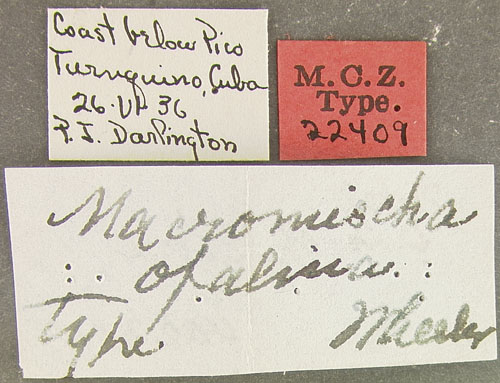 Coast below Pico
Turnquino, Cuba
26·VI·36
P. J. Darlington
M.C.Z.
Type.
22409
Macromischa
opalina
Type
Wheeler